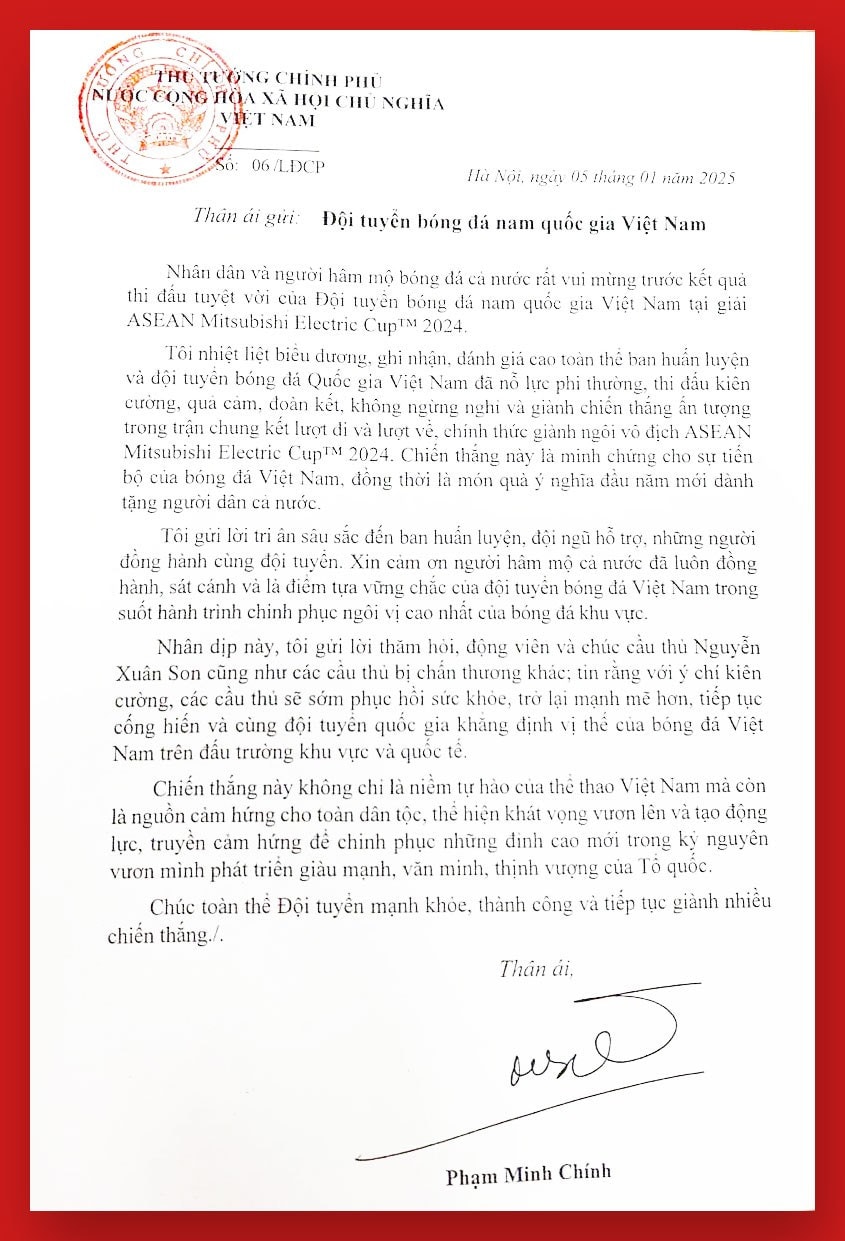 THỦ TƯỚNG CHÍNH PHỦ
NƯỚC CỘNG HÒA XÃ HỘI CHỦ NGHĨA
VIỆT NAM
Số: 06/LĐCP
Hà Nội, ngày 05 tháng 01 năm 2025
Thân ái gửi: Đội tuyển bóng đá nam quốc gia Việt Nam
Nhân dân và người hâm mộ bóng đá cả nước rất vui mừng trước kết quả
thi đấu tuyệt vời của Đội tuyển bóng đá nam quốc gia Việt Nam tại giải
ASEAN Mitsubishi Electric Cup™ 2024.
Tôi nhiệt liệt biểu dương, ghi nhận, đánh giá cao toàn thể ban huấn luyện
và đội tuyển bóng đá Quốc gia Việt Nam đã nỗ lực phi thường, thi đấu kiên
cường, quả cảm, đoàn kết, không ngừng nghỉ và giành chiến thắng ấn tượng
trong trận chung kết lượt đi và lượt về, chính thức giành ngôi vô địch ASEAN
Mitsubishi Electric Cup™ 2024. Chiến thắng này là minh chứng cho sự tiến
bộ của bóng đá Việt Nam, đồng thời là món quà ý nghĩa đầu năm mới dành
tặng người dân cả nước.
Tôi gửi lời tri ân sâu sắc đến ban huấn luyện, đội ngũ hỗ trợ, những người
đồng hành cùng đội tuyển. Xin cảm ơn người hâm mộ cả nước đã luôn đồng
hành, sát cánh và là điểm tựa vững chắc của đội tuyển bóng đá Việt Nam trong
suốt hành trình chinh phục ngôi vị cao nhất của bóng đá khu vực.
Nhân dịp này, tôi gửi lời thăm hỏi, động viên và chúc cầu thủ Nguyễn
Xuân Son cũng như các cầu thủ bị chấn thương khác; tin rằng với ý chí kiên
cường, các cầu thủ sẽ sớm phục hồi sức khỏe, trở lại mạnh mẽ hơn, tiếp tục
cống hiến và cùng đội tuyển quốc gia khẳng định vị thế của bóng đá Việt
Nam trên đấu trường khu vực và quốc tế.
Chiến thắng này không chỉ là niềm tự hào của thể thao Việt Nam mà còn
là nguồn cảm hứng cho toàn dân tộc, thể hiện khát vọng vươn lên và tạo động
lực, truyền cảm hứng để chinh phục những đỉnh cao mới trong kỷ nguyên
vươn mình phát triển giàu mạnh, văn minh, thịnh vượng của Tổ quốc.
Chúc toàn thể Đội tuyển mạnh khỏe, thành công và tiếp tục giành nhiều
chiến thắng./.
Thân ái,
Phạm Minh Chính